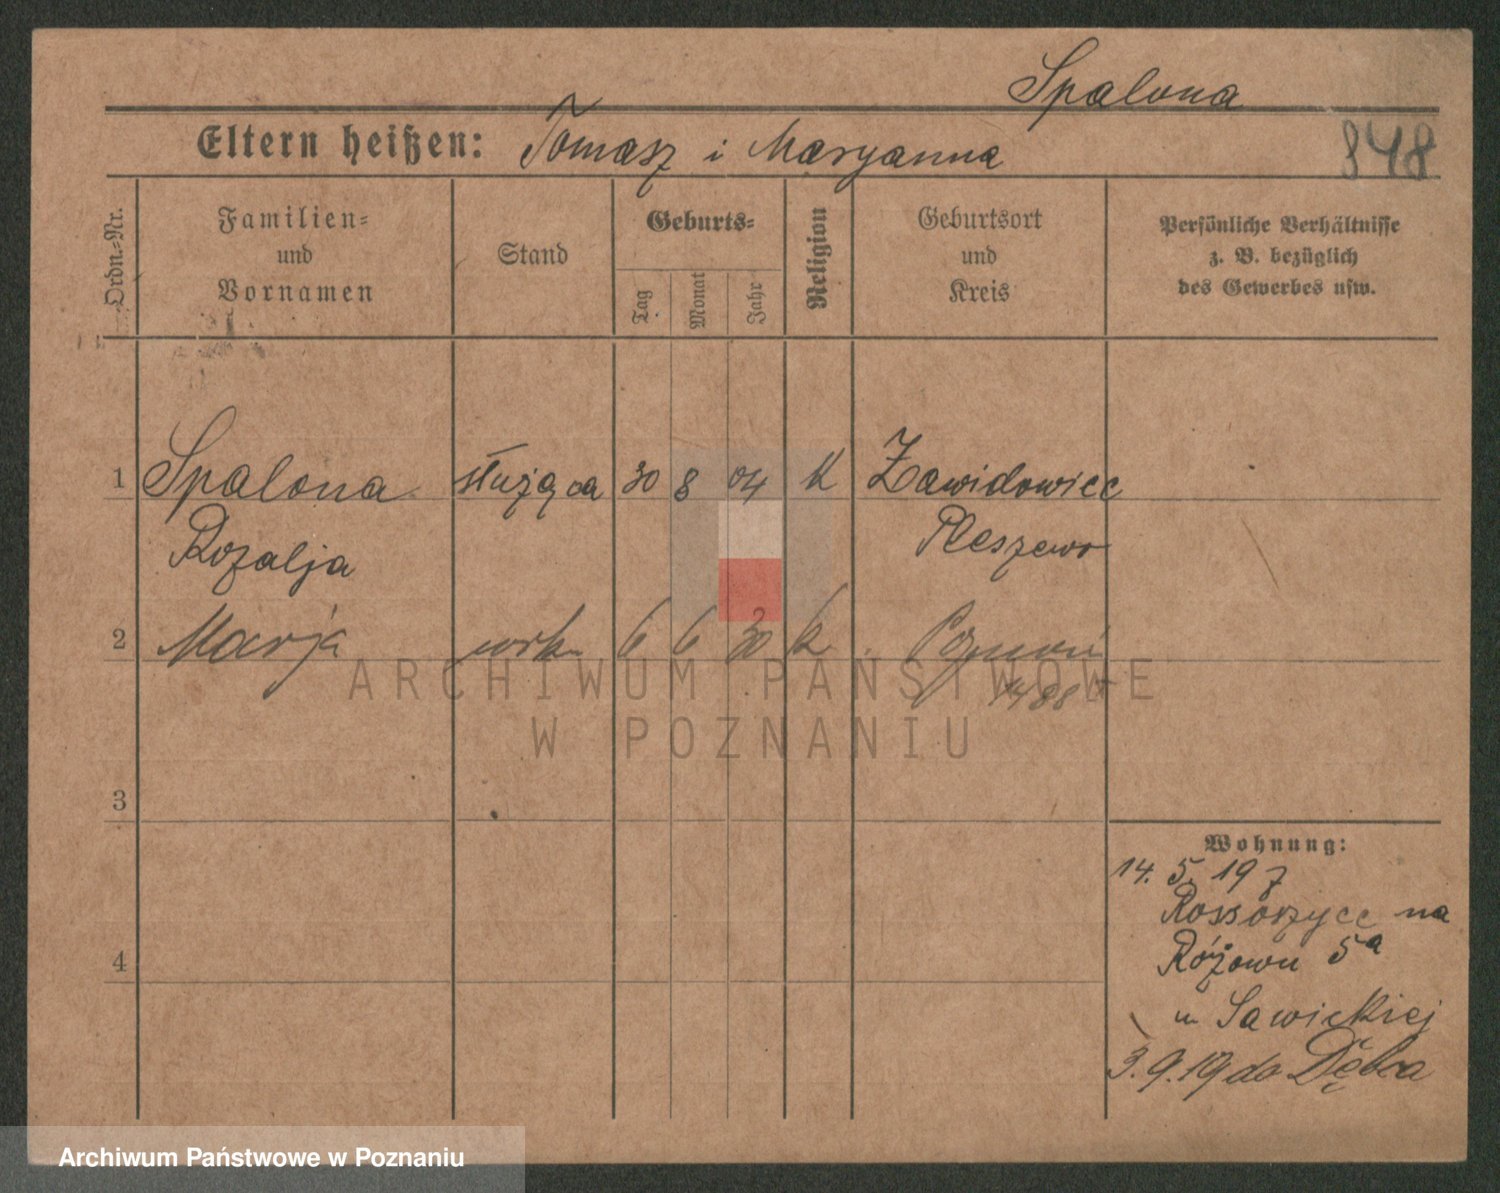 Spalona
848
Eltern heißen: Tomasz i Maryanna
Ordn.=Nr.
Familien=
und
Vornamen
Stand
Geburts=
Tag
Monat
Jahr
Religion
Geburtsort
und
Kreis
Persönliche Verhältnisse
z. B. bezüglich
des Gewerbes usw.
1 Spalona służąca 30 8 04 K Zawidowice
Rozalja Pleszewo
2 Marja 6 6 30 k Poznań
ARCHIWUM PAŃSTWOWE
W POZNANIU
3
Wohnung:
14. 5. 19 z
Rossoszyce na
Różowu 5a
4
u Sawickiej
3. 9. 19 do Dębca
Archiwum Państwowe w Poznaniu